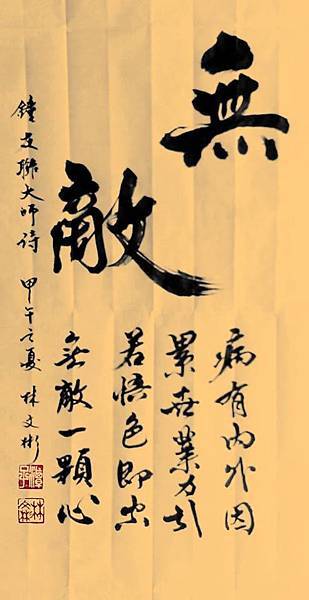 無
敵
病有內外因
累世業力引
若悟色即空
無敵一顆心
鐘聯大師詩 甲午之夏 林文彬